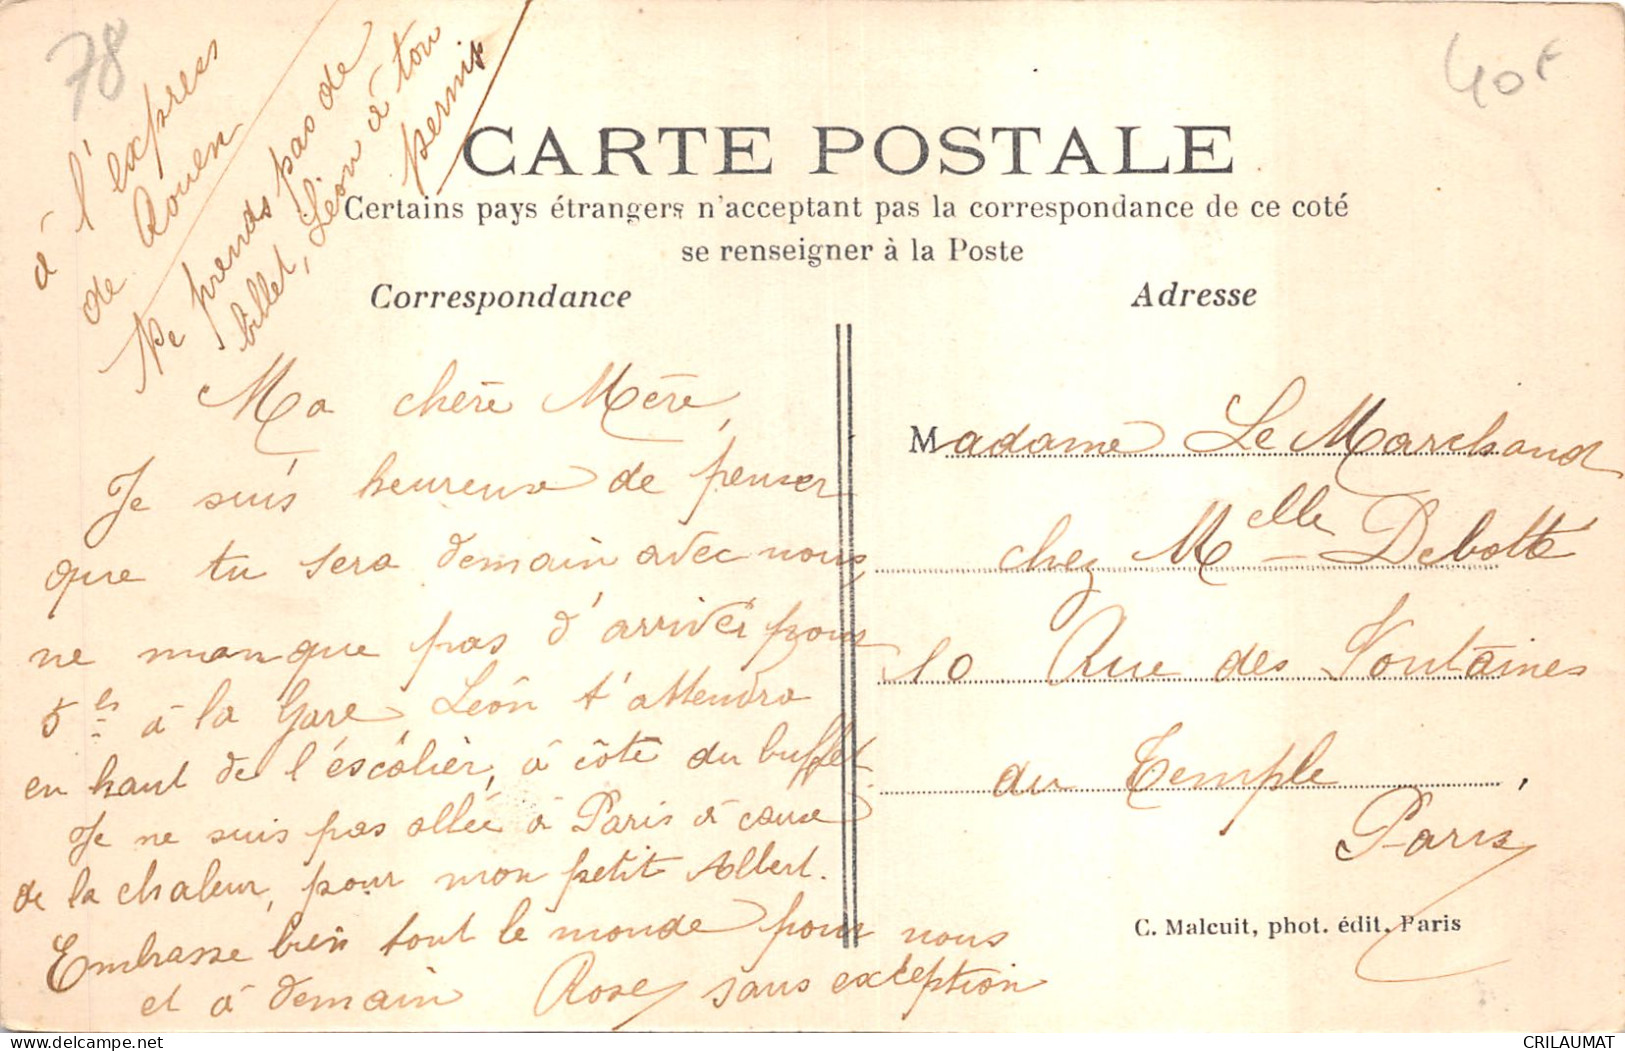 78
40F
à l'express
de Rouen
Ne prends pas de
billet, Léon à ton
permis
CARTE POSTALE
Certains pays étrangers n'acceptant pas la correspondance de ce coté
se renseigner à la Poste
Correspondance
Adresse
Ma chère Mère,
Je suis heureuse de penser
que tu sera demain avec nous,
ne manque pas d'arriver pour
5 à la Gare, Léon t'attendra
en haut de l'éscàlier, à côté du buffet.
Je ne suis pas allée à Paris à cause
de la chaleur, pour mon petit Albert.
Embrasse bien tout le monde pour nous
et à demain Rose sans exception
Madame Le Marchand
chez Melle Debotte
10 Rue des Fontaines
du Temple,
Paris
C. Malcuit, phot. édit. Paris
CRILAUMAT